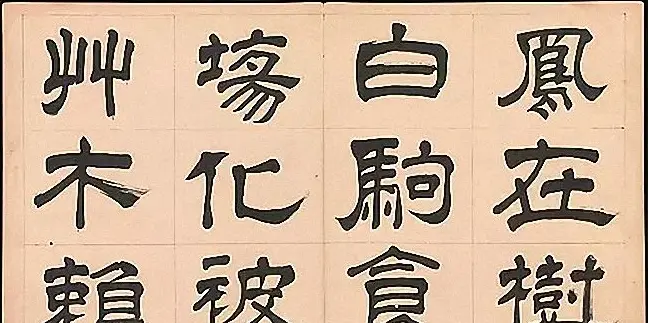 鳳在樹
白駒食
場化被
艸木賴